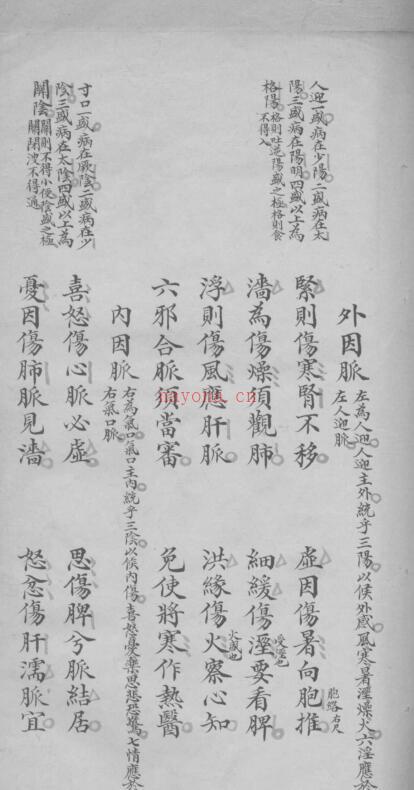 人迎一盛病在少陽二盛病在太
陽三盛病在陽明四盛以上為
格陽格則吐逆陽盛之極格則食
不得入
寸口一盛病在厥陰二盛病在少
陰三盛病在太陰四盛以上為
關陰關則不得小便陰盛之極
關閉溲不得通
外因脈
左為人迎人迎主外統乎三陽以候外感風寒暑溼燥火六淫應於
左人迎脈
緊則傷寒腎不移
虛因傷暑向胞推
胞絡右尺
濇為傷燥須觀肺
細緩傷溼要看脾
受溼也
浮則傷風應肝脈
洪緣傷火察心知
火盛也
六邪合脈須當審
免使將寒作熱醫
內因脈
右為氣口氣口主內統乎三陰以候內傷喜怒憂樂思悲恐驚七情應於
右氣口脈
喜怒傷心脈必虛
思傷脾兮脈結居
憂因傷肺脈見濇
怒忿傷肝濡脈宜
nayona.cn